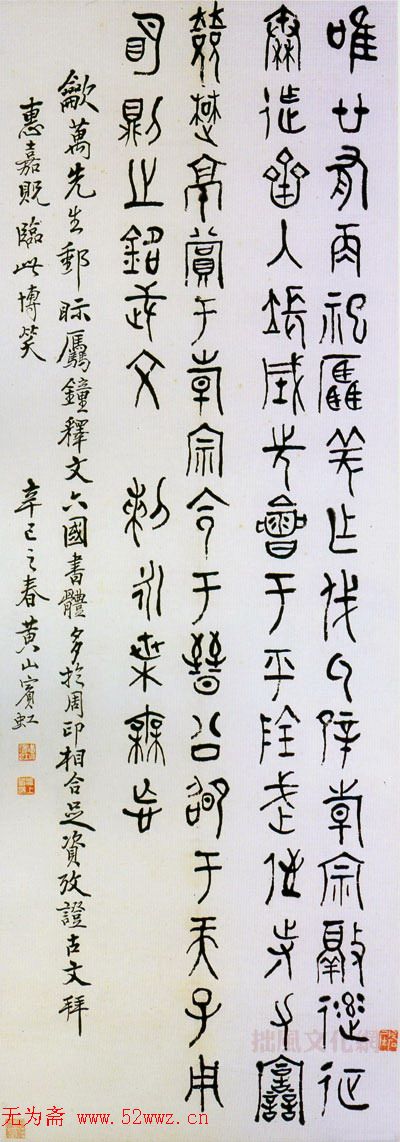 唯廿又再祀驫羌乍伐氒辟倝宗敲達征
秦迮齊入張城先會于平陰武侄寺力
敚楚京賞于倝宗令于晉公卲于天子用
明則之銘武文剌永枼無忘
歙萬先生郵眎驫鐘釋文六國書體多於周印相合足資攷證古文拜
惠嘉貺臨此博笑
辛巳之春黃山賓虹
拙風文化網
无为斋 www.52wwz.cn